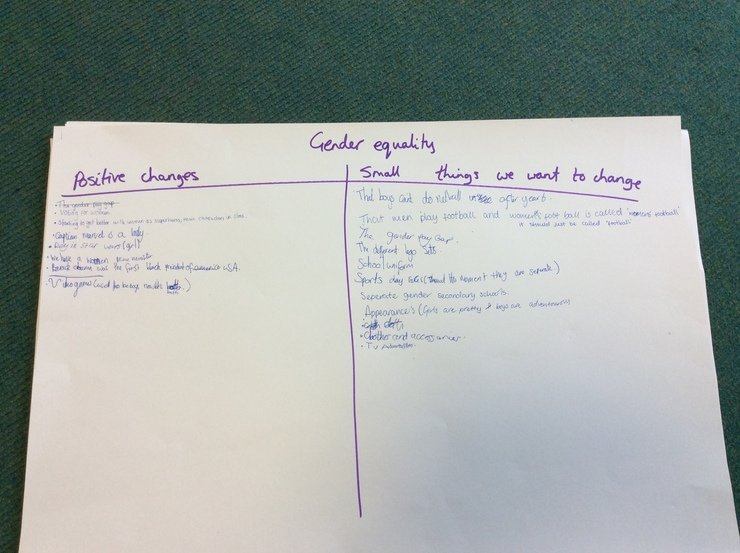 Gender equality
Positive changes
• The gender pay gap
• Voting for women
• Starting to get better with women as superheros, main characters in films.
• Captain marvel is a lady
• Rey in star wars (girl)
We have a women prime minister
• Barack obama was the first black president of america USA.
Video games (used to be boys now it's both.)
Small things we want to change
That boys cant do netball after year 6.
That men play football and women's foot ball is called 'womens football'
it should just be called 'football'
The gender pay gap.
The different lego sets.
School uniform
Sports day races (the moment they are separate.)
Seperate gender secondary schools.
Appearances (Girls are pretty & boys are adventurous
• Clothes and accessories
• TV Adverts